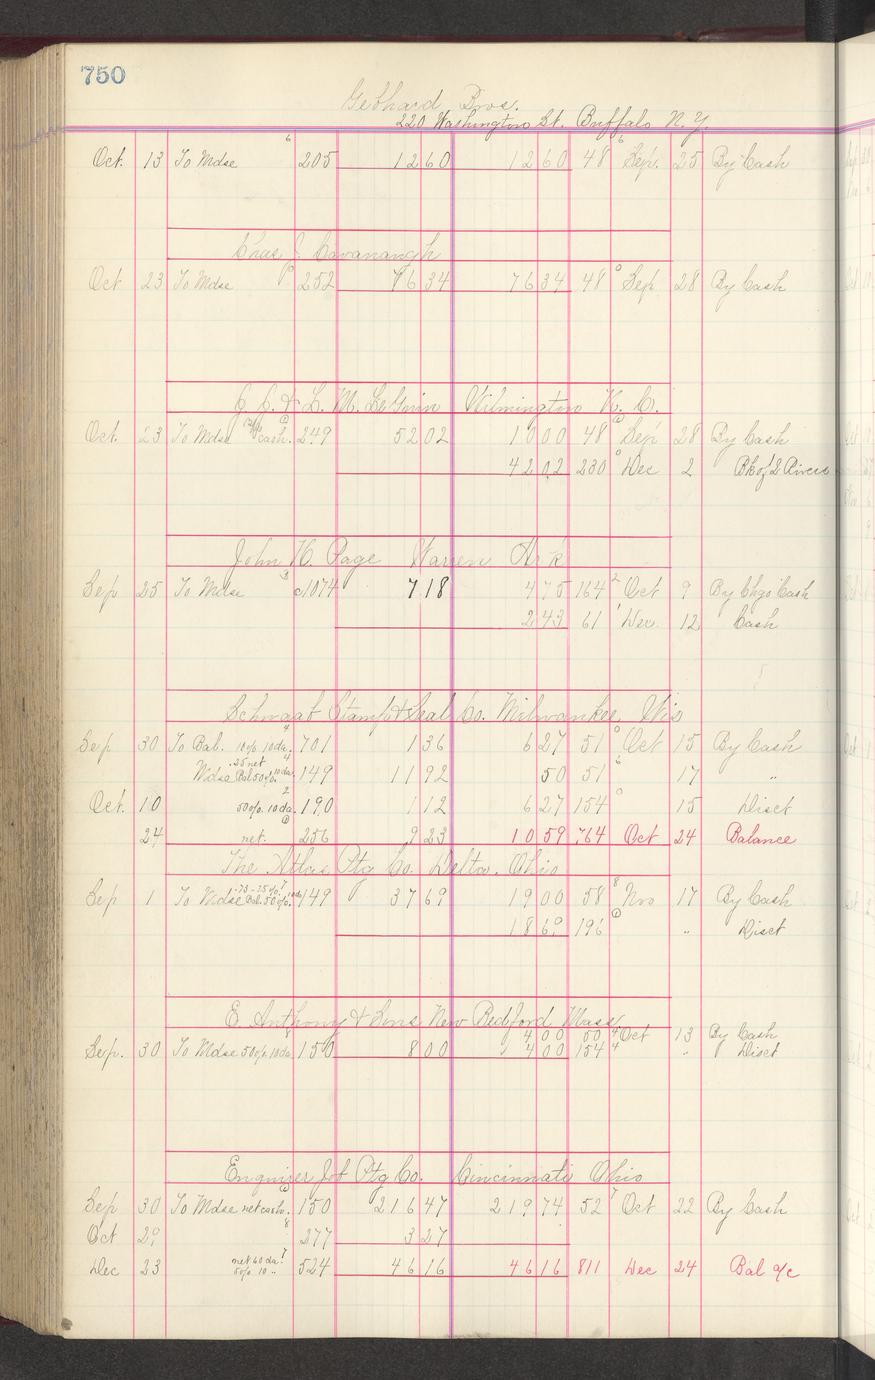 750
Gebhard Bros.
220 Washington St. Buffalo N. Y.
Oct. 13 To Mdse 6 205 12 60 12 60 48 6 Sep. 25 By Cash
Chas J. Cavanaugh
Oct 23 To Mdse 0 252 76 34 76 34 48 0 Sep 28 By Cash
J. J. & L. M. LeGwin Wilmington N. C.
Oct. 23 To Mdse cash. 249 52 02 10 00 48 Sep 28 By Cash
42 02 230 0 Dec 2 Bk of 2 Rivers
John H. Page Warren Ark
Sep 25 To Mdse 3 c1074 7 18 4 75 164 2 Oct 9 By Chgo Cash
2 43 61 1 Dec. 12 Cash
Schwaab Stamp & Seal Co. Milwaukee Wis
Sep 30 To Bal. 10% 10 da. 4 701 1 36 6 27 51 0 Oct 15 By Cash
Mdse .25 net Bal 50% 10 da. 4 149 11 92 50 51 6 17 "
Oct. 10 50% 10 da. 2 190 1 12 6 27 154 0 15 Disct
24 net. 256 9 23 10 59 764 Oct 24 Balance
The Atlas Ptg Co. Delta. Ohio
Sep 1 To Mdse Bal. 50% 10 da 149 37 69 19 00 58 8 Nov 17 By Cash
18 69 196 " Disct
E. Anthony & Sons New Bedford Mass
4 00 50 4 Oct 13 By Cash
Sep. 30 To Mdse 50% 10 da 8 150 8 00 4 00 154 4 " Disct
Enquirer Job Ptg Co. Cincinnati Ohio
Sep 30 To Mdse net cash. 150 216 47 219 74 52 7 Oct 22 By Cash
Oct 29 8 277 3 27
Dec 23 net 60 da. 7 5% 10 " 524 46 16 46 16 811 Dec 24 Bal a/c